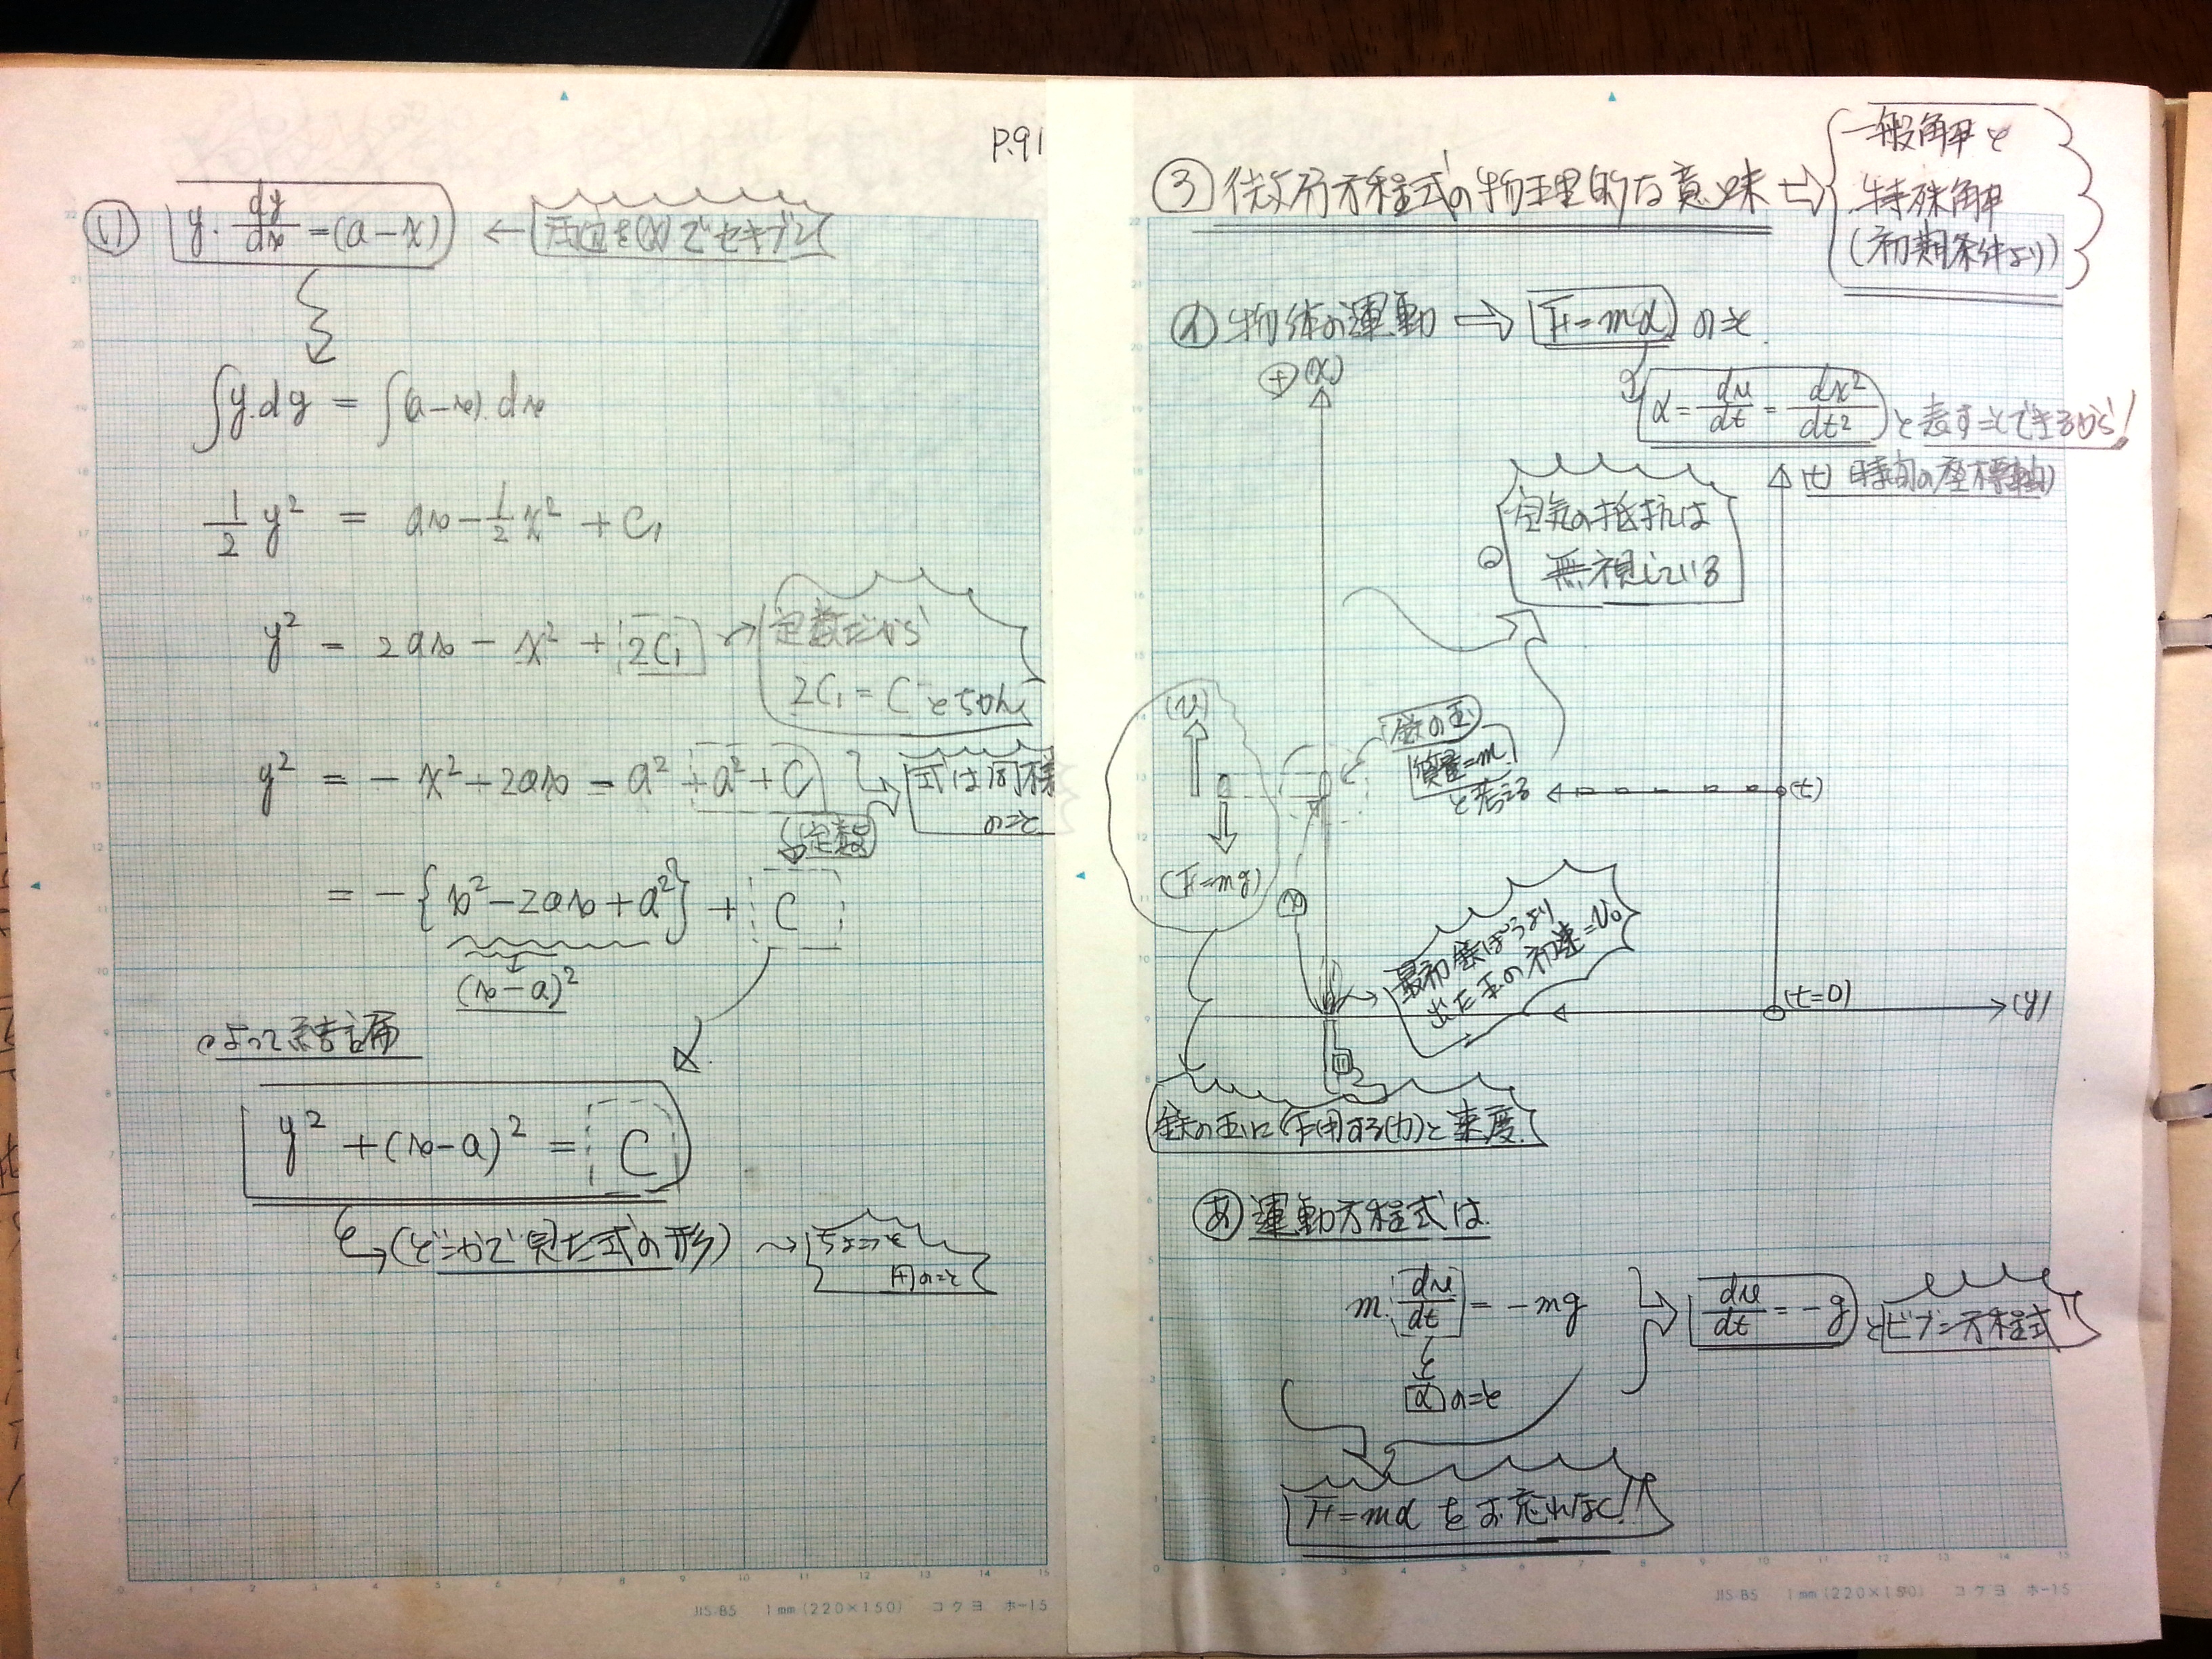 P.91
(1) y・dy/dx = (a-x) ← 両辺を(x)でセキブン
∫y.dy = ∫(a-x).dx
1/2 y² = ax - 1/2 x² + C₁
y² = 2ax - x² + 2C₁
定数だから
2C₁ = C とちかん
y² = -x² + 2ax - a² + a² + C
式は同様
のこと
定数
= -{x² - 2ax + a²} + C
(x-a)²
よって結論
y² + (x-a)² = C
(どこかで見た式の形)
ちょこっと
円のこと
③ 微分方程式の物理的な意味 ⇒
一般解と
特殊解
(初期条件より)
イ 物体の運動 ⇒ F=mα のこと
⊕ (x)
α = du/dt = dx²/dt² と表すことできるから!
(t) 時間の座標軸
空気の抵抗は
無視している
(v)
鉄の玉
質量=m
と考える
(t)
(F=mg)
(x)
最初鉄ぽうより
出た玉の初速=V₀
(t=0)
(y)
鉄の玉に作用する(力)と速度
あ 運動方程式は
m. du/dt = -mg
du/dt = -g とビブン方程式
α のこと
F=mα をお忘れなく!
JIS B5 1mm(220×150) コクヨ ホ-15
JIS B5 1mm(220×150) コクヨ ホ-15